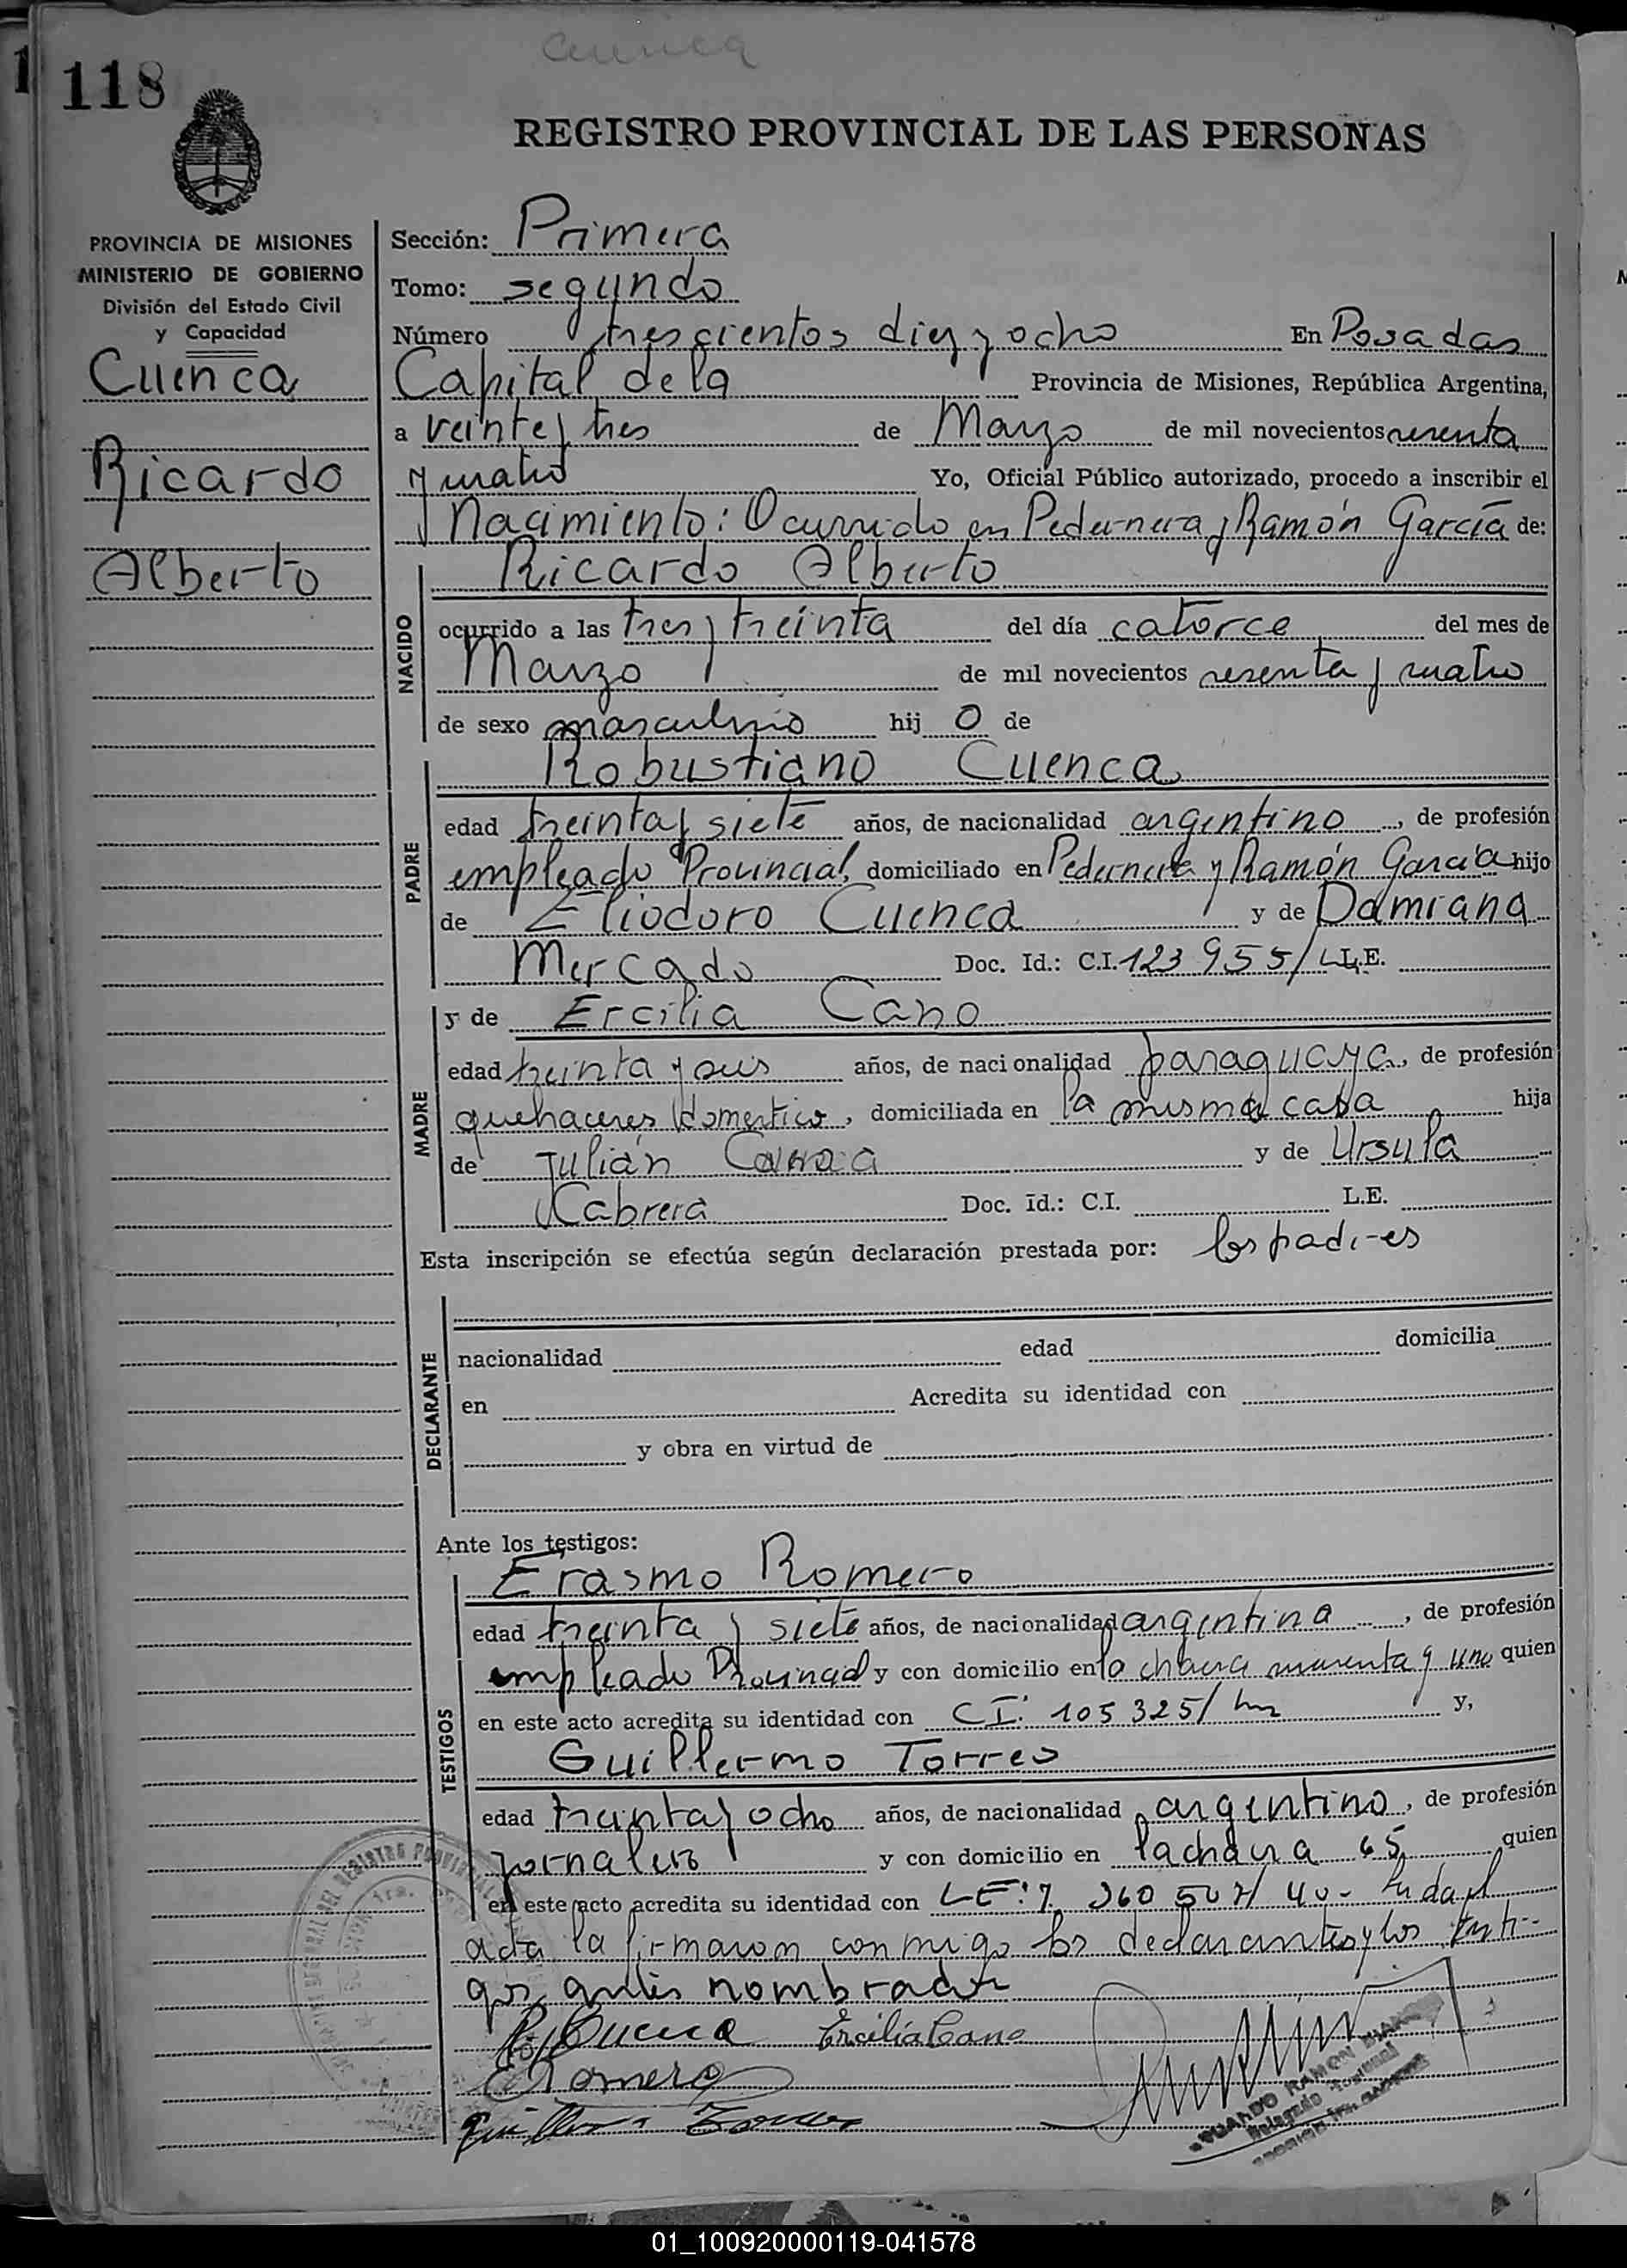 Cuenca
118
REGISTRO PROVINCIAL DE LAS PERSONAS
PROVINCIA DE MISIONES
MINISTERIO DE GOBIERNO
División del Estado Civil
y Capacidad
Cuenca
Ricardo
Alberto
Sección: Primera
Tomo: segundo
Número trescientos diez y ocho En Posadas
Capital de la Provincia de Misiones, República Argentina,
a veinte y tres de Marzo de mil novecientos sesenta
y cuatro Yo, Oficial Público autorizado, procedo a inscribir el
Nacimiento: Ocurrido en Pedernera y Ramón García de:
NACIDO
Ricardo Alberto
ocurrido a las tres y treinta del día catorce del mes de
Marzo de mil novecientos sesenta y cuatro
de sexo masculino hij o de
PADRE
Robustiano Cuenca
edad treinta y siete años, de nacionalidad argentino, de profesión
empleado Provincial, domiciliado en Pedernera y Ramón García hijo
de Eliodoro Cuenca y de Damiana
Mercado Doc. Id.: C.I. 123 955/ L.E.
MADRE
y de Ercilia Cano
edad treinta y seis años, de nacionalidad paraguaya, de profesión
quehaceres domestico, domiciliada en la misma casa hija
de Julián y de Ursula
Cabrera Doc. Id.: C.I. L.E.
Esta inscripción se efectúa según declaración prestada por: los padres
DECLARANTE
nacionalidad edad domicilia
en Acredita su identidad con
y obra en virtud de
Ante los testigos:
TESTIGOS
Erasmo Romero
edad treinta y siete años, de nacionalidad argentina, de profesión
empleado Provincial y con domicilio en la chacra cuarenta y uno quien
en este acto acredita su identidad con CI: 105 325/ y,
Guillermo Torres
edad treinta y ocho años, de nacionalidad argentino, de profesión
jornalero y con domicilio en la chacra 65 quien
en este acto acredita su identidad con LE: 7
acta la firmaron conmigo los declarantes y los testi-
gos antes nombrados
Cuenca Ercilia Cano
Romero
Guillermo Torres
RAMON
Delegado
01_100920000119-041578